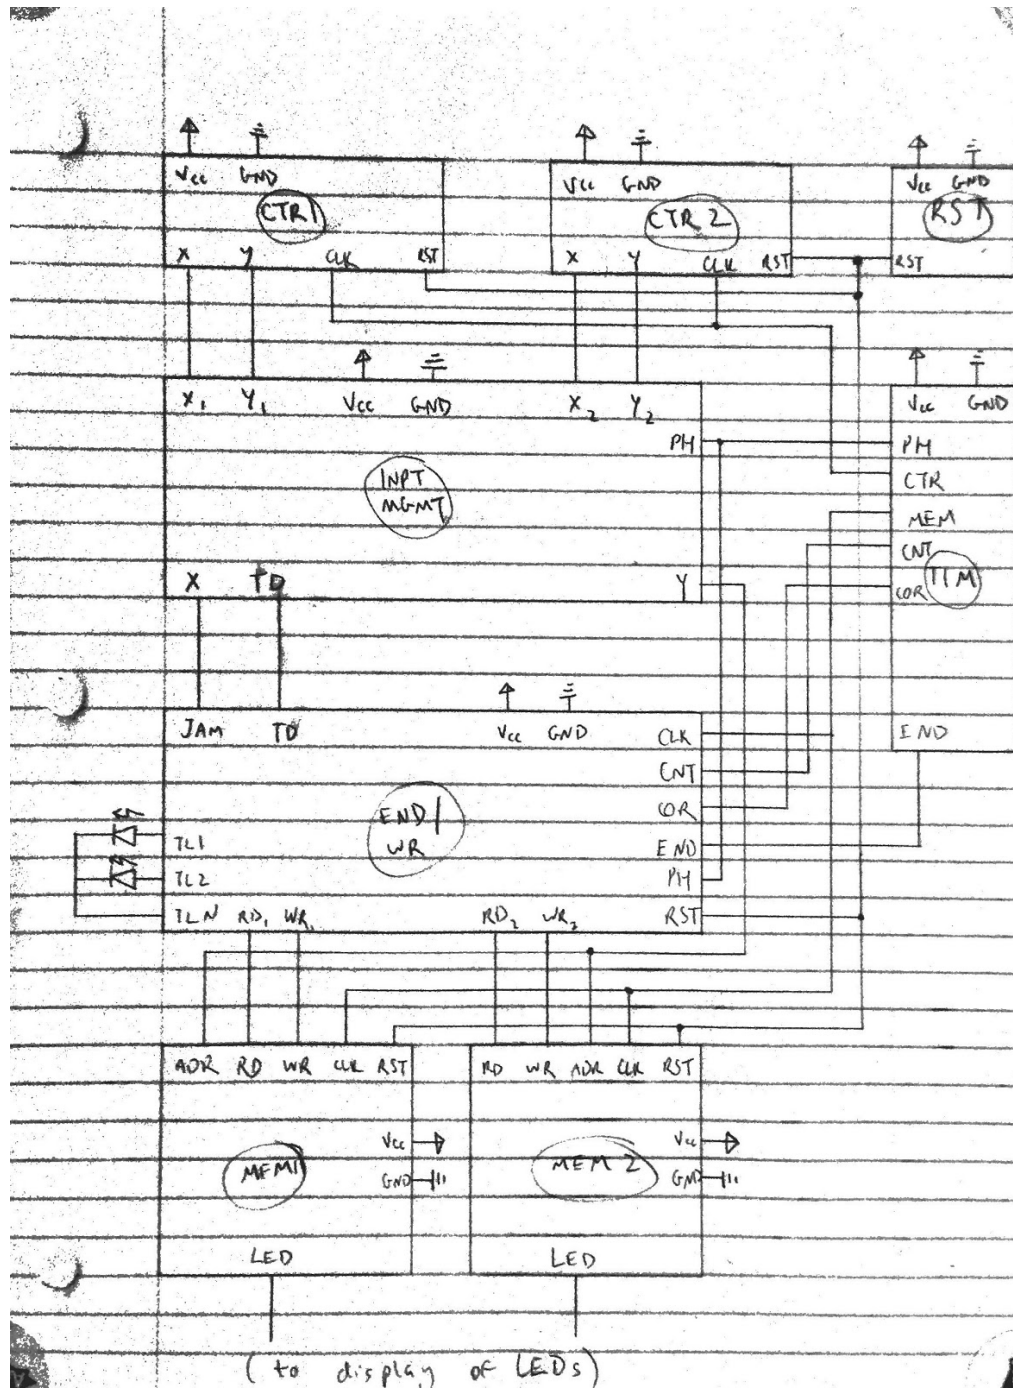 Vcc GND
CTR 1
X Y CLK RST
Vcc GND
CTR 2
X Y CLK RST
Vcc GND
RST
RST
X1 Y1 Vcc GND X2 Y2
PH
INPT
MGMT
X TD Y
Vcc GND
PH
CTR
MEM
CNT
TIM
COR
END
JAM TD Vcc GND CLK
CNT
END/
WR
COR
TL1 END
TL2 PH
TLN RD1 WR1 RD2 WR2 RST
ADR RD WR CLK RST
Vcc
MEM1
GND
LED
RD WR ADR CLK RST
Vcc
MEM 2
GND
LED
(to display of LEDs)